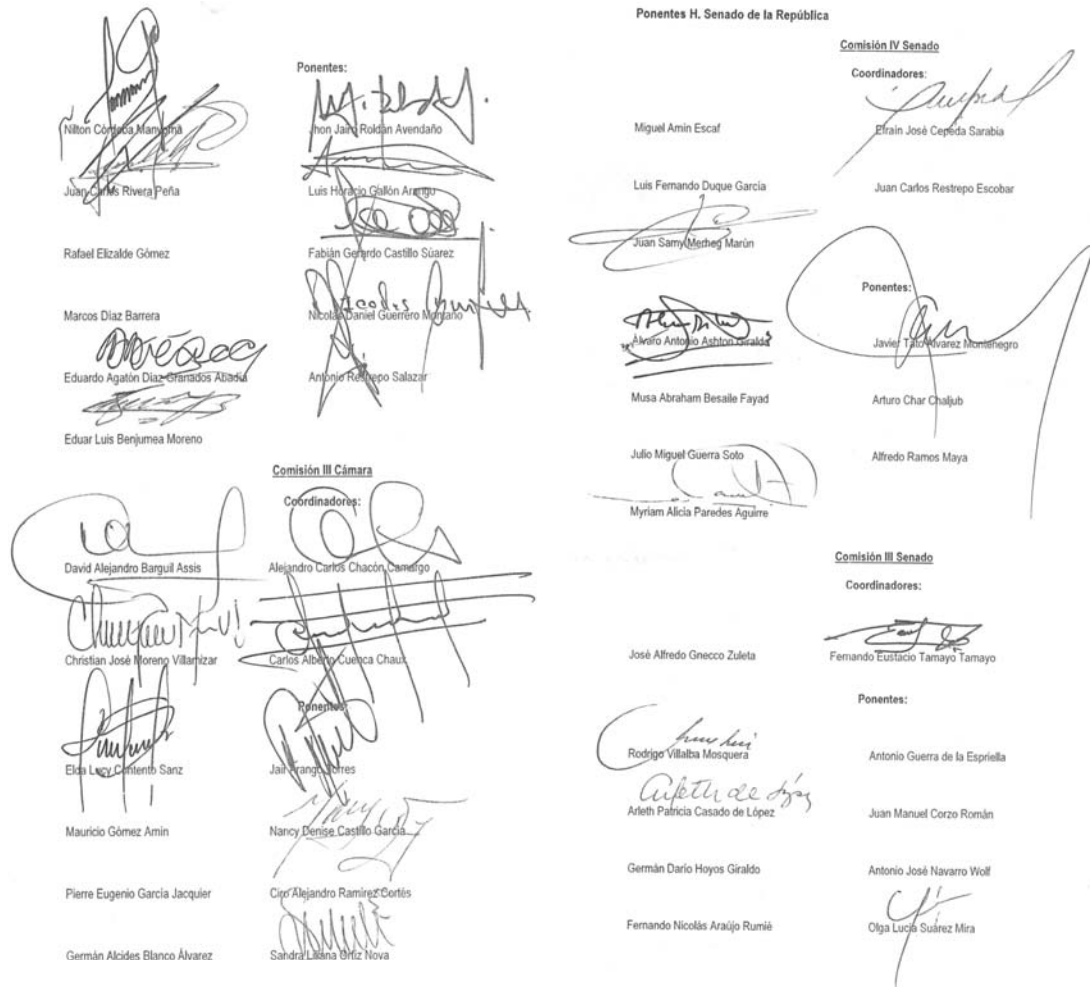 Ponentes:
Nilton Córdoba Manyoma
Jhon Jairo Roldan Avendaño
Juan Carlos Rivera Peña
Luis Horacio Gallón Arango
Rafael Elizalde Gómez
Fabián Gerardo Castillo Súarez
Marcos Díaz Barrera
Nicolas Daniel Guerrero Montaño
Eduardo Agatón Diaz-Granados Abadía
Antonio Restrepo Salazar
Eduar Luis Benjumea Moreno
Comisión III Cámara
Coordinadores:
David Alejandro Barguil Assis
Alejandro Carlos Chacón Camargo
Christian José Moreno Villamizar
Carlos Alberto Cuenca Chaux
Ponentes:
Elda Lucy Contento Sanz
Jair Arango Torres
Mauricio Gómez Amin
Nancy Denise Castillo García
Pierre Eugenio García Jacquier
Ciro Alejandro Ramírez Cortés
Germán Alcides Blanco Álvarez
Sandra Liliana Ortiz Nova
Ponentes H. Senado de la República
Comisión IV Senado
Coordinadores:
Miguel Amin Escaf
Efraín José Cepeda Sarabia
Luis Fernando Duque García
Juan Carlos Restrepo Escobar
Juan Samy Merheg Marún
Ponentes:
Álvaro Antonio Ashton Giraldo
Javier Tato Álvarez Montenegro
Musa Abraham Besaile Fayad
Arturo Char Chaljub
Julio Miguel Guerra Soto
Alfredo Ramos Maya
Myriam Alicia Paredes Aguirre
Comisión III Senado
Coordinadores:
José Alfredo Gnecco Zuleta
Fernando Eustacio Tamayo Tamayo
Ponentes:
Rodrigo Villalba Mosquera
Antonio Guerra de la Espriella
Arleth Patricia Casado de López
Juan Manuel Corzo Román
Germán Darío Hoyos Giraldo
Antonio José Navarro Wolf
Fernando Nicolás Araújo Rumié
Olga Lucía Suárez Mira